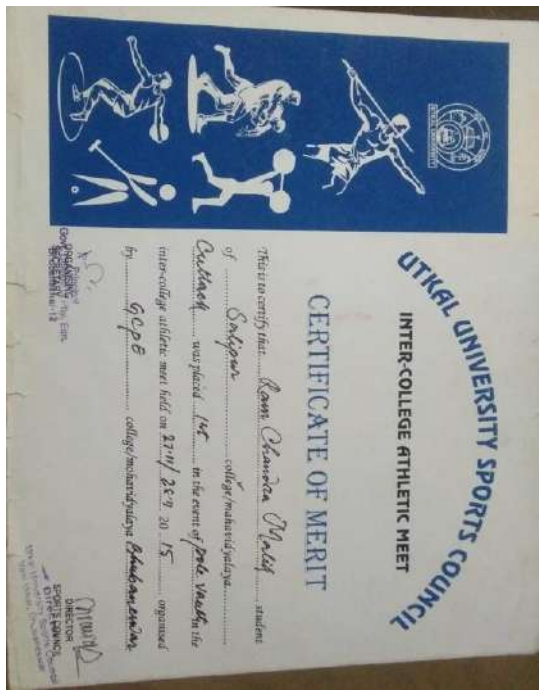 UTKAL UNIVERSITY
UTKAL UNIVERSITY SPORTS COUNCIL
INTER-COLLEGE ATHLETIC MEET
CERTIFICATE OF MERIT
This is to certify that Ram Chandra Malik student
of Salipur college/mahavidyalaya
Cuttack was placed 1st in the event of pole vault in the
inter-college athletic meet held on 27.11/28.11 20 15 organised
by GCPE college/mohavidyalaya Bhubaneswar
ORGANISING
SECRETARY
DIRECTOR
SPORTS COUNCIL
Utkal University Sports Council